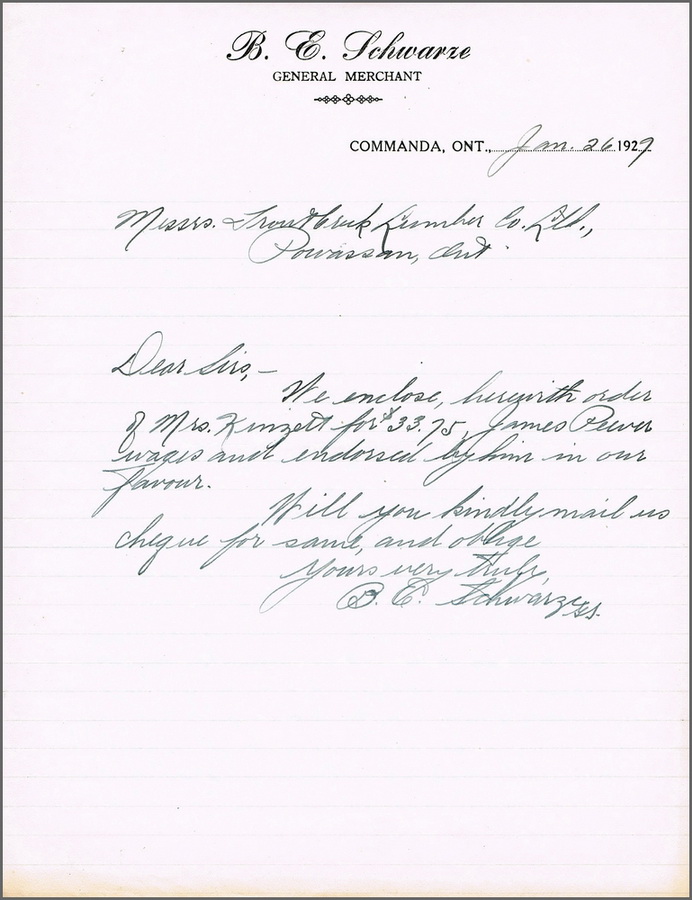 B. E. Schwarze
GENERAL MERCHANT
COMMANDA, ONT., Jan. 26 1929
Messrs. Trout Creek Lumber Co. Ltd.,
Powassan, Ont.
Dear Sirs,—
We enclose, herewith order
of Mrs. Kinzett for $33.75, James Peever
wages and endorsed by him in our
favour.
Will you kindly mail us
cheque for same, and oblige
Yours very truly,
B. E. Schwarze